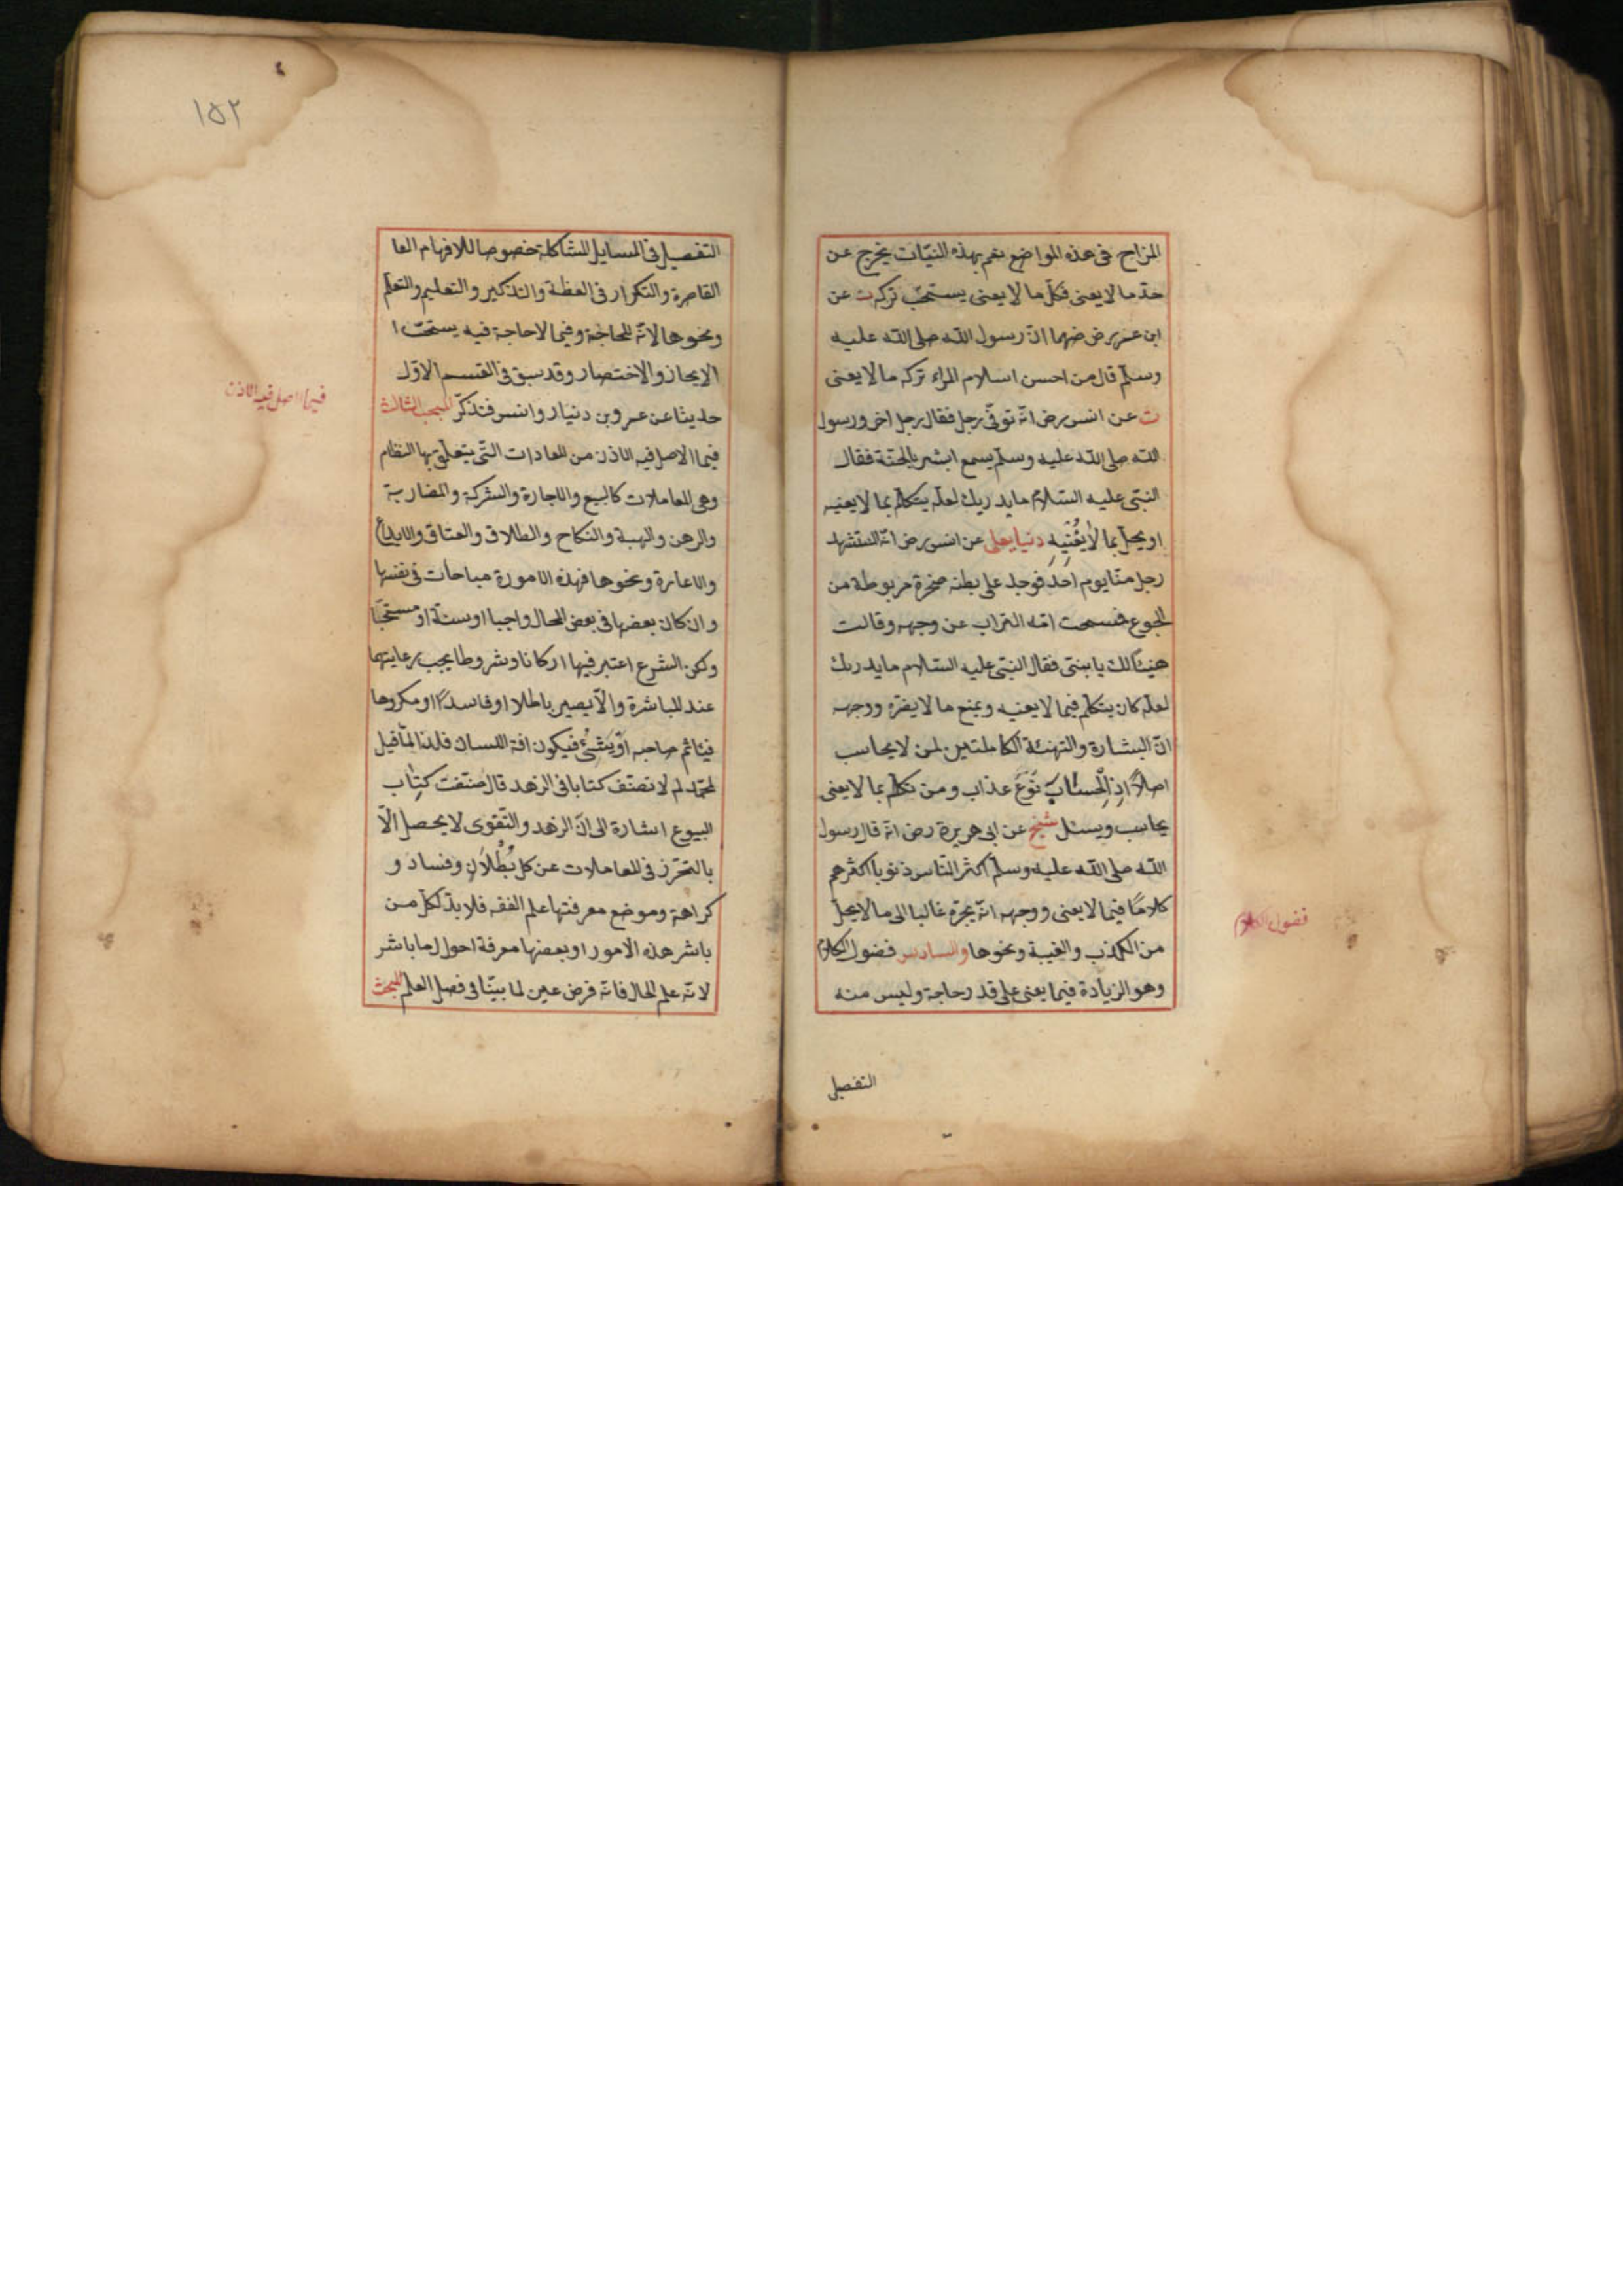 المزاح فى هذه المواضع نعم بهذه النيّات يخرج عن
حدّ ما لا يعنى فكلّ ما لا يعنى يستحبّ تركه ت عن
ابن عمر رض ضهما انّ رسول الله صلى الله عليه
وسلّم قال من احسن اسلام المراء تركه ما لا يعنى
ت عن انس رض انّه توفّى رجل فقال رجل اخر ورسول
الله صلى الله عليه وسلّم يسمع ابشر بالجنّة فقال
النبّى عليه السّلام ما يدريك لعلّه يتكلّم بما لا يعنيه
او يخل بما لا يُغْنِيهِ دنيا يعلى عن انس رض انّه استشهد
رجل منّا يوم احد فوجد على بطنه صخرة مربوطة من
الجوع فمسحت امّه التراب عن وجهه وقالت
هنيئا لك يا بنىّ فقال النبّى عليه السّلام ما يدريك
لعلّه كان يتكلّم فيما لا يعنيه ويمنع ما لا يضرّه ووجهه
انّ البشارة والتهنئة الكاملتين لمن لا يحاسب
اصلاً اذ الْحساب نَوْعَ عذاب ومن تكلّم بما لا يعنى
يحاسب ويسئل شيخ عن ابى هريرة رض انّه قال رسول
الله صلى الله عليه وسلّم اكثر النّاس ذنوبا اكثرهم
كلامًا فيما لا يعنى ووجهه انّه يجرّه غالبا الى ما لا يحلّ
من الكذب والغيبة ونحوها والسادس فضول الكلام
وهو الزيادة فيما يعنى على قدر حاجة وليس منه
فضول الكلام
التفصيل
١٥٢
التفصيل فى المسايل المشاكلة خصوصا للافهام العا
القاصرة والتكرار فى العظة والتذكير والتعليم والتعلّم
ونحوها لانّه للحاجة وفيما لا حاجة فيه يستحبّ ا
الايجاز والاختصار وقد سبق فى القسم الاوّل
حديثا عن عمرو بن دنيار وانس فتذكّر المبحث الثالث
فيما الاصل فيه الاذن من العادات التّى يتعلّق بها النظام
وهى المعاملات كالبيع والاجارة والشركة والمضاربة
والرهن والهبة والنكاح والطلاق والعتاق والايداع
والاعارة ونحوها فهذه الامورة مباحات فى نفسها
وان كان بعضها فى بعض المحال واجبا او سنّة او مستحبّا
ولكن الشرع اعتبر فيها اركانا وشروطا يجب رعايتها
عند المباشرة والّا يصير باطلا او فاسدًا او مكروها
فيتاثم صاحبه او يَسْئُ فيكون افة اللسان فلذا لمّا قيل
لمحمّد لم لا تصنّف كتابا فى الزهد قال صنّفت كتاب
البيوع اشارة الى انّ الزهد والتّقوى لا يحصل الّا
بالتحرّز فى المعاملات عن كل بُطْلاَنٍ وفساد و
كراهة وموضع معرفتها علم الفقه فلا بدّ لكل من
باشر هذه الامور او بعضها معرفة احول لما باشر
لانّه علم الحال فانّه فرض عين لما بيّنا فى فصل العلم المبحث
فيما اصل فيه الاذن